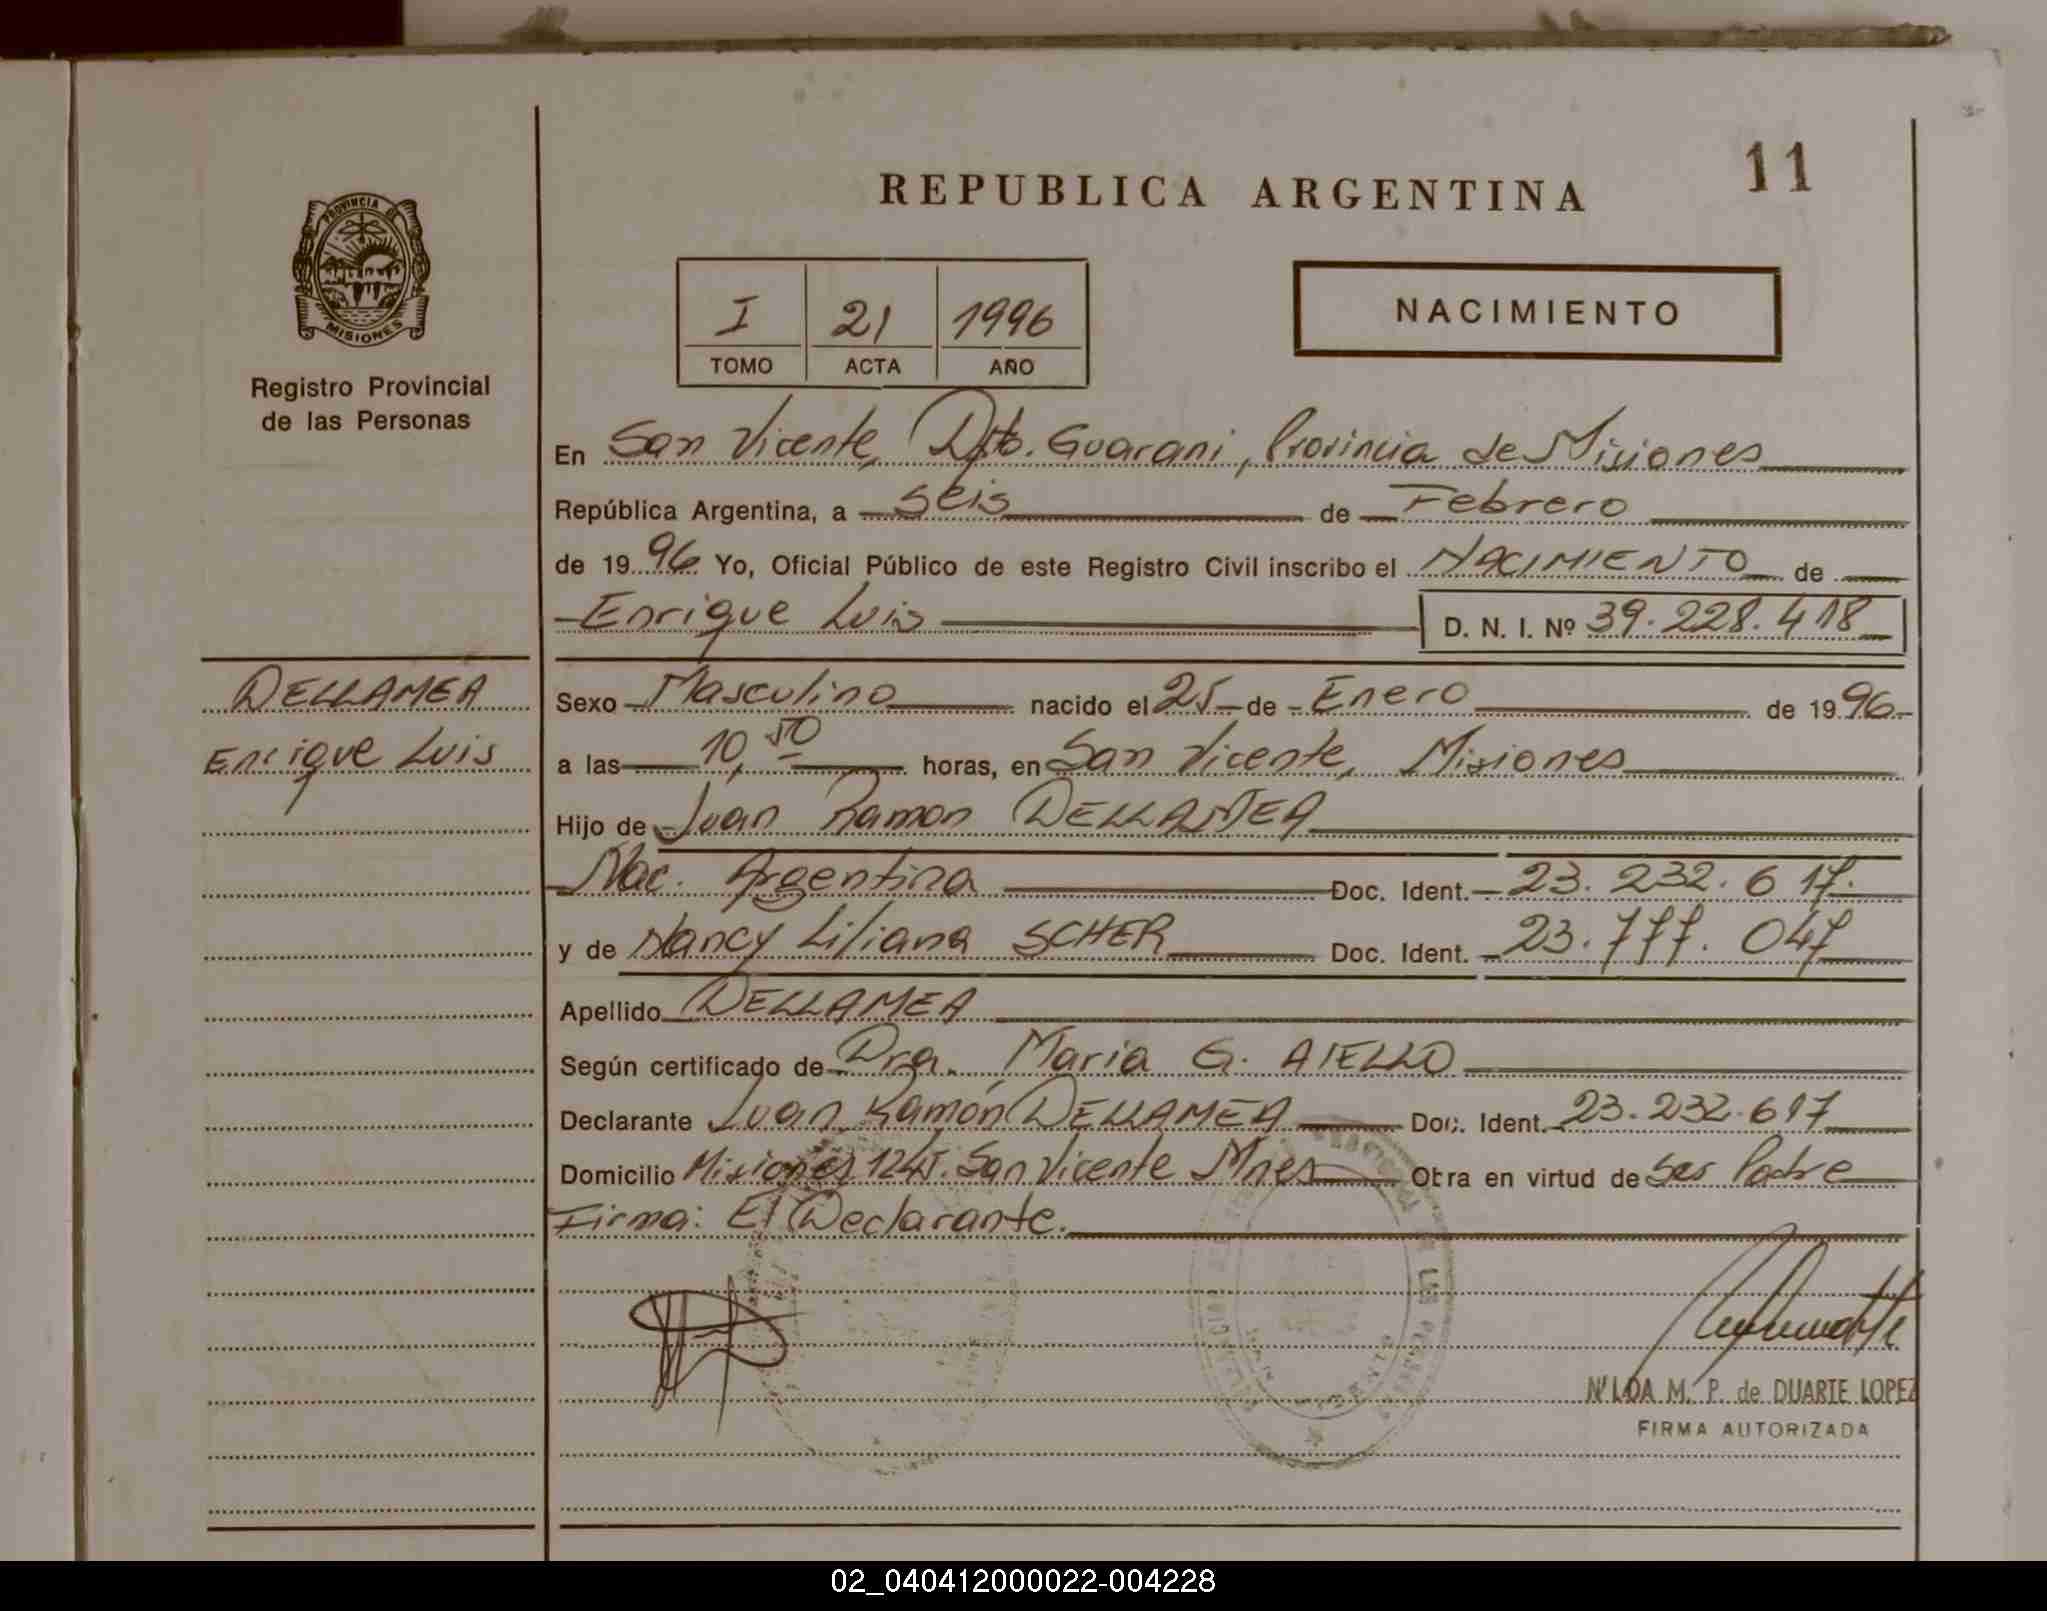 REPUBLICA ARGENTINA
11
PROVINCIA DE
MISIONES
Registro Provincial
de las Personas
I 21 1996
TOMO ACTA AÑO
NACIMIENTO
En San Vicente, Dpto. Guarani, Provincia de Misiones
República Argentina, a seis de Febrero
de 1996 Yo, Oficial Público de este Registro Civil inscribo el NACIMIENTO de
Enrique Luis D. N. I. Nº 39.228.418
DELLAMEA
Enrique Luis
Sexo Masculino nacido el 25 de Enero de 1996
a las 10,50 horas, en San Vicente, Misiones
Hijo de Juan Ramon DELLAMEA
Nac. Argentina Doc. Ident. 23.232.617.
y de Nancy Liliana SCHER Doc. Ident. 23.777.047
Apellido DELLAMEA
Según certificado de Dra. Maria G. AIELLO
Declarante Juan Ramón DELLAMEA Doc. Ident. 23.232.617
Domicilio Misiones 1245. San Vicente Mnes Obra en virtud de Ser Padre
Firma: El Declarante.
NILDA M. P. de DUARTE LOPEZ
FIRMA AUTORIZADA
02_040412000022-004228